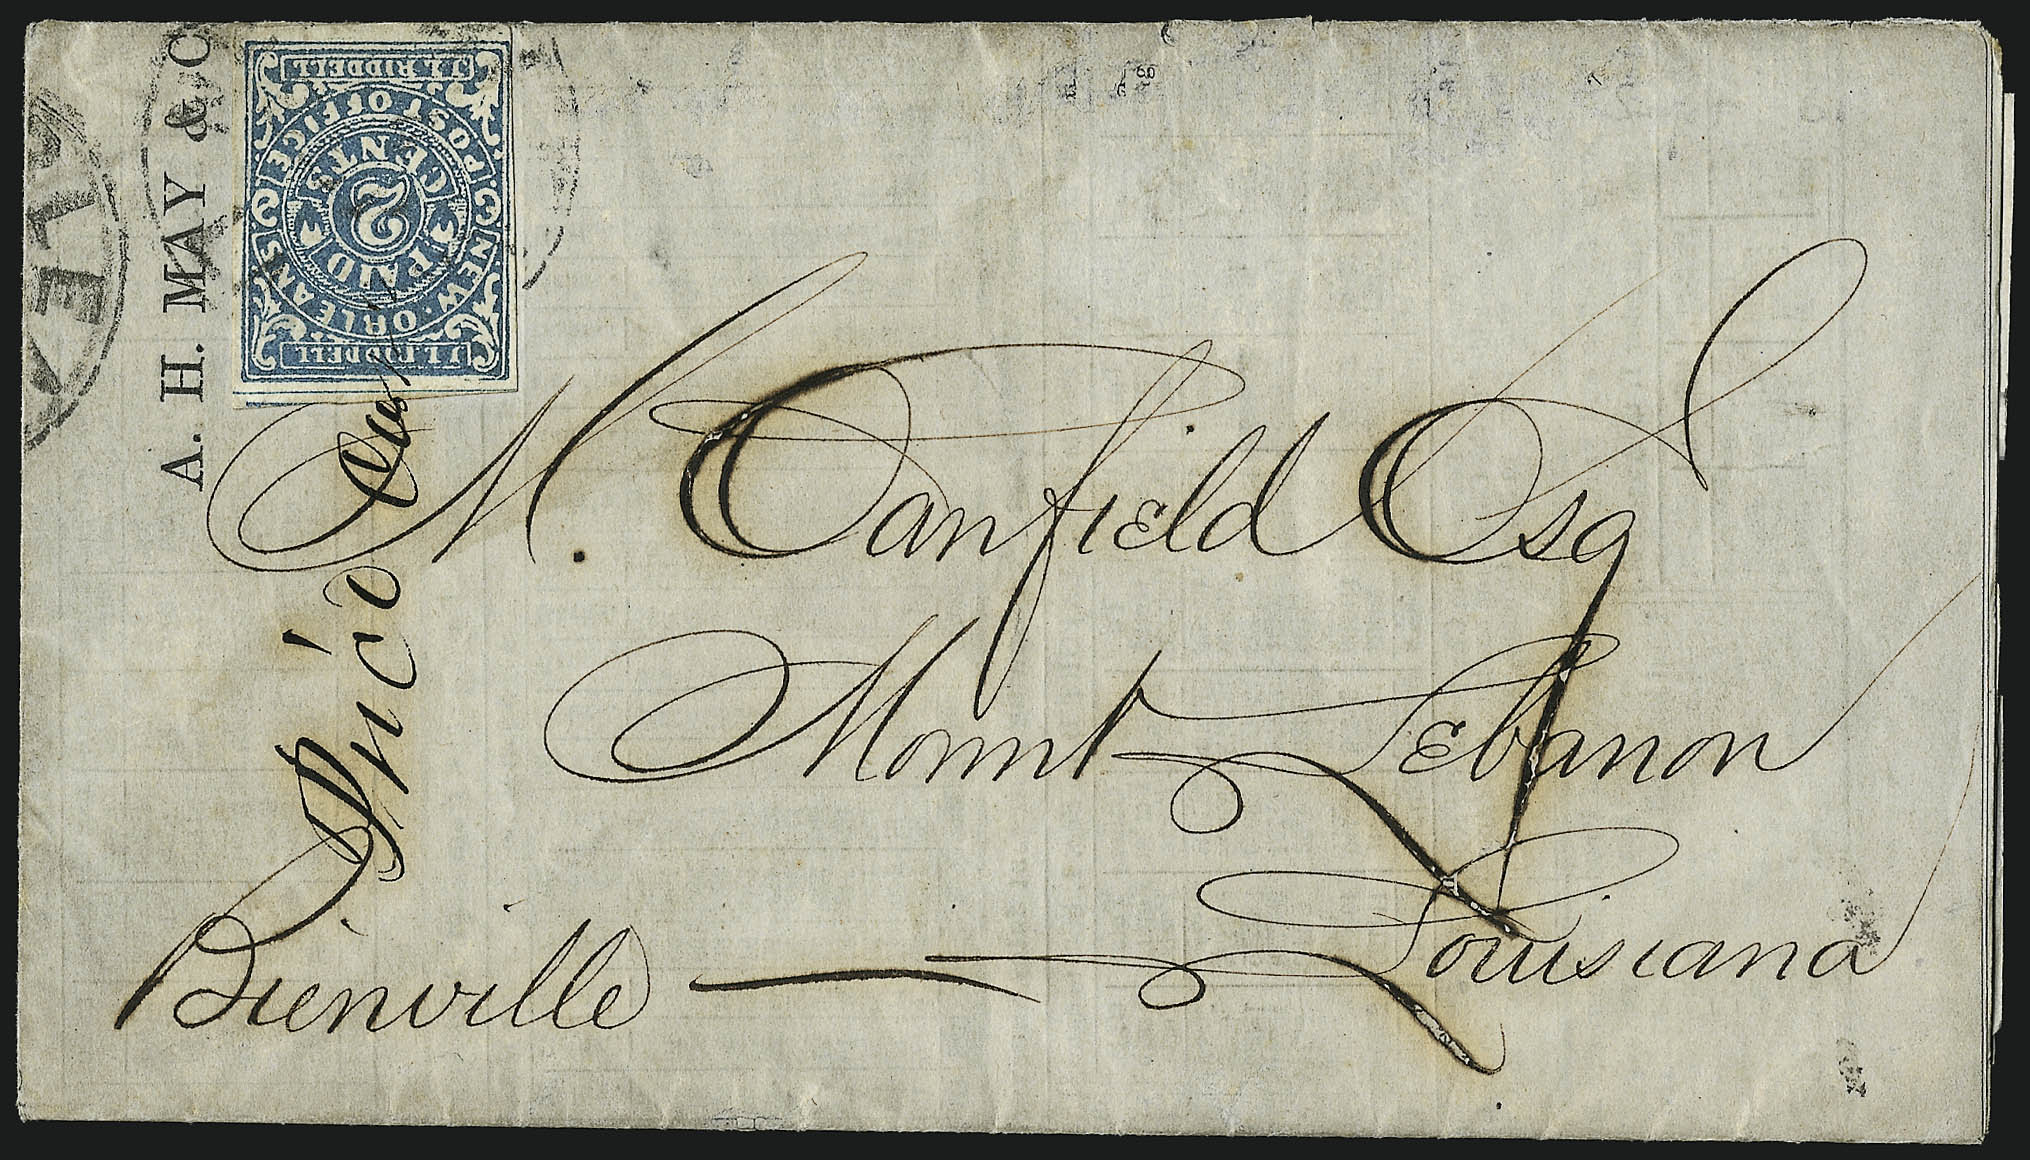 A. H. MAY & C
J. L. RIDDELL
NEW ORLEANS POST OFFICE
PAID 2 CENTS
J. L. RIDDELL
M. Canfield Esq
Mount Lebanon
Louisiana
Bienville